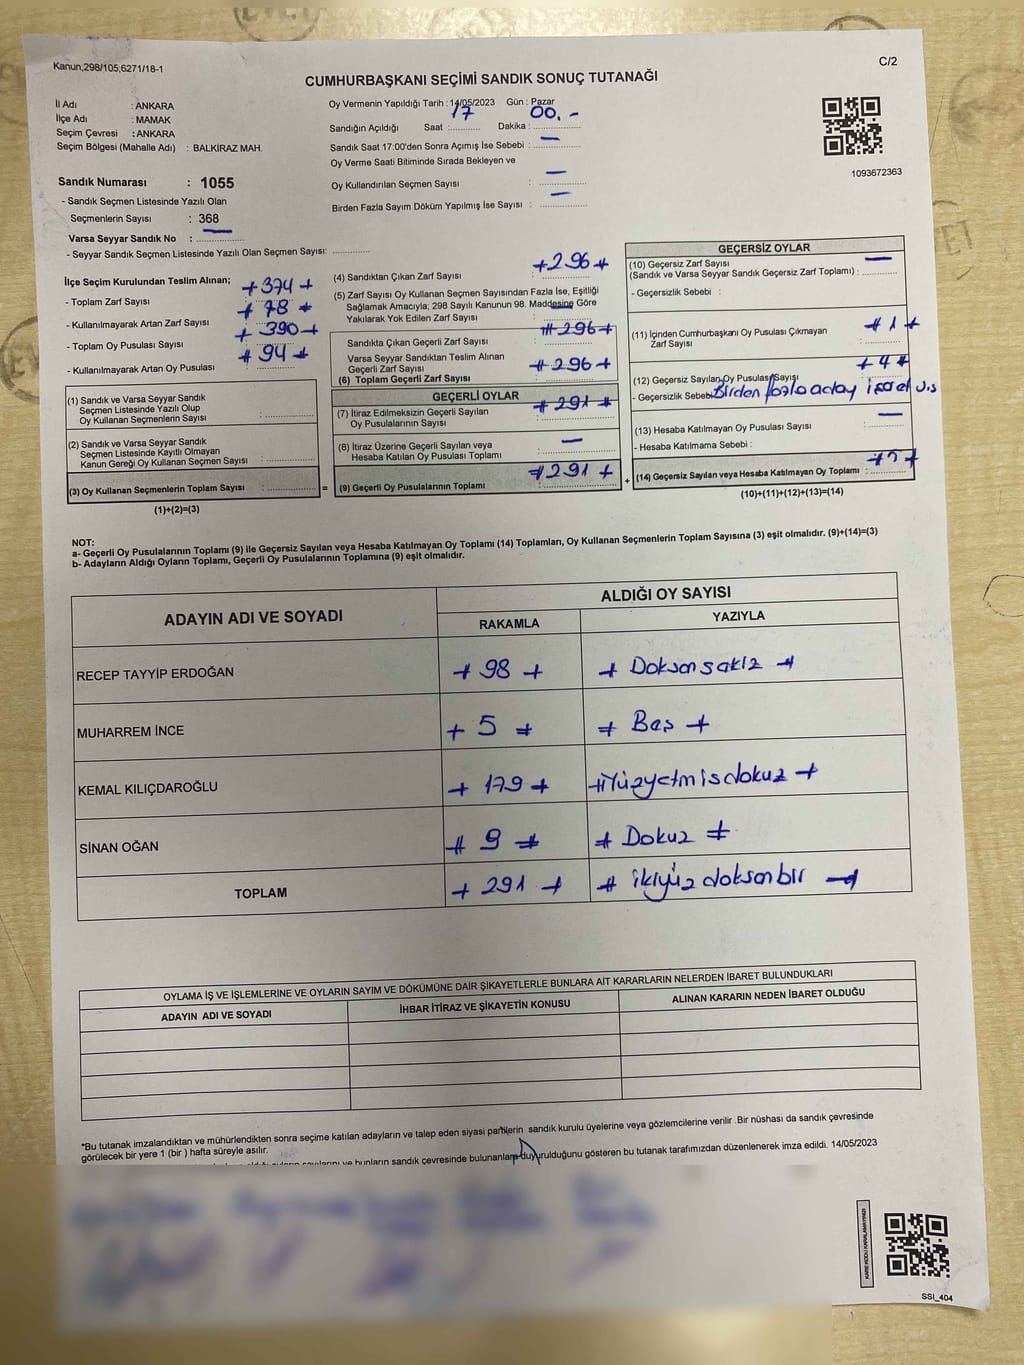 Kanun;298/105;6271/18-1
C/2
CUMHURBAŞKANI SEÇİMİ SANDIK SONUÇ TUTANAĞI
İl Adı : ANKARA
İlçe Adı : MAMAK
Seçim Çevresi : ANKARA
Seçim Bölgesi (Mahalle Adı) : BALKİRAZ MAH.
Sandık Numarası : 1055
- Sandık Seçmen Listesinde Yazılı Olan
Seçmenlerin Sayısı : 368
Varsa Seyyar Sandık No :
- Seyyar Sandık Seçmen Listesinde Yazılı Olan Seçmen Sayısı:
Oy Vermenin Yapıldığı Tarih : 14/05/2023 Gün : Pazar
Sandığın Açıldığı Saat : 17 Dakika : 00. -
Sandık Saat 17:00'den Sonra Açımış İse Sebebi : —
Oy Verme Saati Bitiminde Sırada Bekleyen ve
Oy Kullandırılan Seçmen Sayısı : —
Birden Fazla Sayım Döküm Yapılmış İse Sayısı : —
1093672363
İlçe Seçim Kurulundan Teslim Alınan;
- Toplam Zarf Sayısı + 374 +
- Kullanılmayarak Artan Zarf Sayısı + 78 +
- Toplam Oy Pusulası Sayısı + 390 +
- Kullanılmayarak Artan Oy Pusulası + 94 +
(1) Sandık ve Varsa Seyyar Sandık
Seçmen Listesinde Yazılı Olup
Oy Kullanan Seçmenlerin Sayısı :
(2) Sandık ve Varsa Seyyar Sandık
Seçmen Listesinde Kayıtlı Olmayan
Kanun Gereği Oy Kullanan Seçmen Sayısı :
(3) Oy Kullanan Seçmenlerin Toplam Sayısı : =
(1)+(2)=(3)
(4) Sandıktan Çıkan Zarf Sayısı : + 296 +
(5) Zarf Sayısı Oy Kullanan Seçmen Sayısından Fazla İse, Eşitliği
Sağlamak Amacıyla; 298 Sayılı Kanunun 98. Maddesine Göre
Yakılarak Yok Edilen Zarf Sayısı : —
Sandıkta Çıkan Geçerli Zarf Sayısı : + 296 +
Varsa Seyyar Sandıktan Teslim Alınan
Geçerli Zarf Sayısı
(6) Toplam Geçerli Zarf Sayısı : + 296 +
GEÇERLİ OYLAR
(7) İtiraz Edilmeksizin Geçerli Sayılan
Oy Pusulalarının Sayısı : + 291 +
(8) İtiraz Üzerine Geçerli Sayılan veya
Hesaba Katılan Oy Pusulası Toplamı : —
(9) Geçerli Oy Pusulalarının Toplamı : + 291 + +
GEÇERSİZ OYLAR
(10) Geçersiz Zarf Sayısı
(Sandık ve Varsa Seyyar Sandık Geçersiz Zarf Toplamı) : —
- Geçersizlik Sebebi :
(11) İçinden Cumhurbaşkanı Oy Pusulası Çıkmayan
Zarf Sayısı : + 1 +
(12) Geçersiz Sayılan Oy Pusulası Sayısı : + 4 +
- Geçersizlik Sebebi Birden fazla aday işaret v.s
(13) Hesaba Katılmayan Oy Pusulası Sayısı : —
- Hesaba Katılmama Sebebi :
(14) Geçersiz Sayılan veya Hesaba Katılmayan Oy Toplamı :
(10)+(11)+(12)+(13)=(14)
NOT:
a- Geçerli Oy Pusulalarının Toplamı (9) ile Geçersiz Sayılan veya Hesaba Katılmayan Oy Toplamı (14) Toplamları, Oy Kullanan Seçmenlerin Toplam Sayısına (3) eşit olmalıdır. (9)+(14)=(3)
b- Adayların Aldığı Oyların Toplamı, Geçerli Oy Pusulalarının Toplamına (9) eşit olmalıdır.
ADAYIN ADI VE SOYADI ALDIĞI OY SAYISI
RAKAMLA YAZIYLA
RECEP TAYYİP ERDOĞAN + 98 + + Doksansakiz +
MUHARREM İNCE + 5 + + Beş +
KEMAL KILIÇDAROĞLU + 179 + + Yüzyetmisdokuz +
SİNAN OĞAN + 9 + + Dokuz +
TOPLAM + 291 + + ikiyüz doksanbir +
OYLAMA İŞ VE İŞLEMLERİNE VE OYLARIN SAYIM VE DÖKÜMÜNE DAİR ŞİKAYETLERLE BUNLARA AİT KARARLARIN NELERDEN İBARET BULUNDUKLARI
ADAYIN ADI VE SOYADI İHBAR İTİRAZ VE ŞİKAYETİN KONUSU ALINAN KARARIN NEDEN İBARET OLDUĞU
*Bu tutanak imzalandıktan ve mühürlendikten sonra seçime katılan adayların ve talep eden siyasi partilerin sandık kurulu üyelerine veya gözlemcilerine verilir .Bir nüshası da sandık çevresinde
görülecek bir yere 1 (bir ) hafta süreyle asılır.
sayılarını ve bunların sandık çevresinde bulunanlara duyurulduğunu gösteren bu tutanak tarafımızdan düzenlenerek imza edildi. 14/05/2023
SSI_404